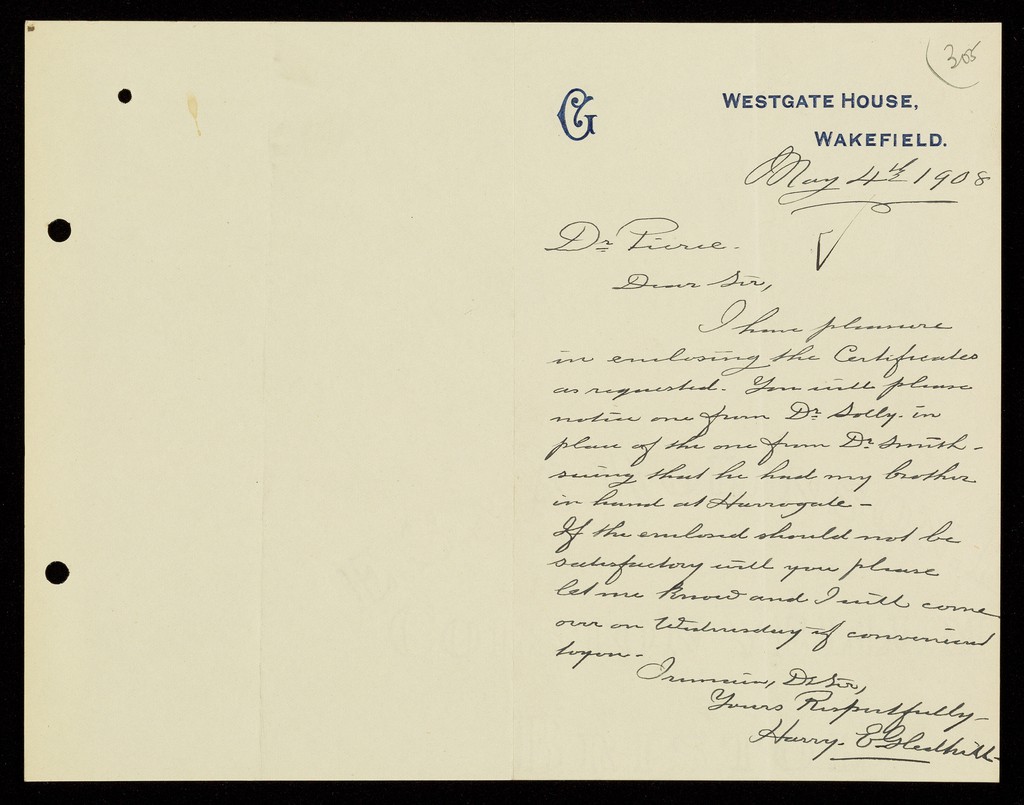 305
G
WESTGATE HOUSE,
WAKEFIELD.
May 4th 1908
Dr. Pierce.
Dear Sir,
I have pleasure
in enclosing the Certificates
as requested. You will please
notice one from Dr. Solly. in
place of the one from Dr. Smith -
seeing that he had my brother
in hand at Harrogate -
If the enclosed should not be
satisfactory will you please
let me know and I will come
over on Wednesday if convenient
to you -
I remain, Dr Sir,
Yours Respectfully -
Harry. E Gledhill -